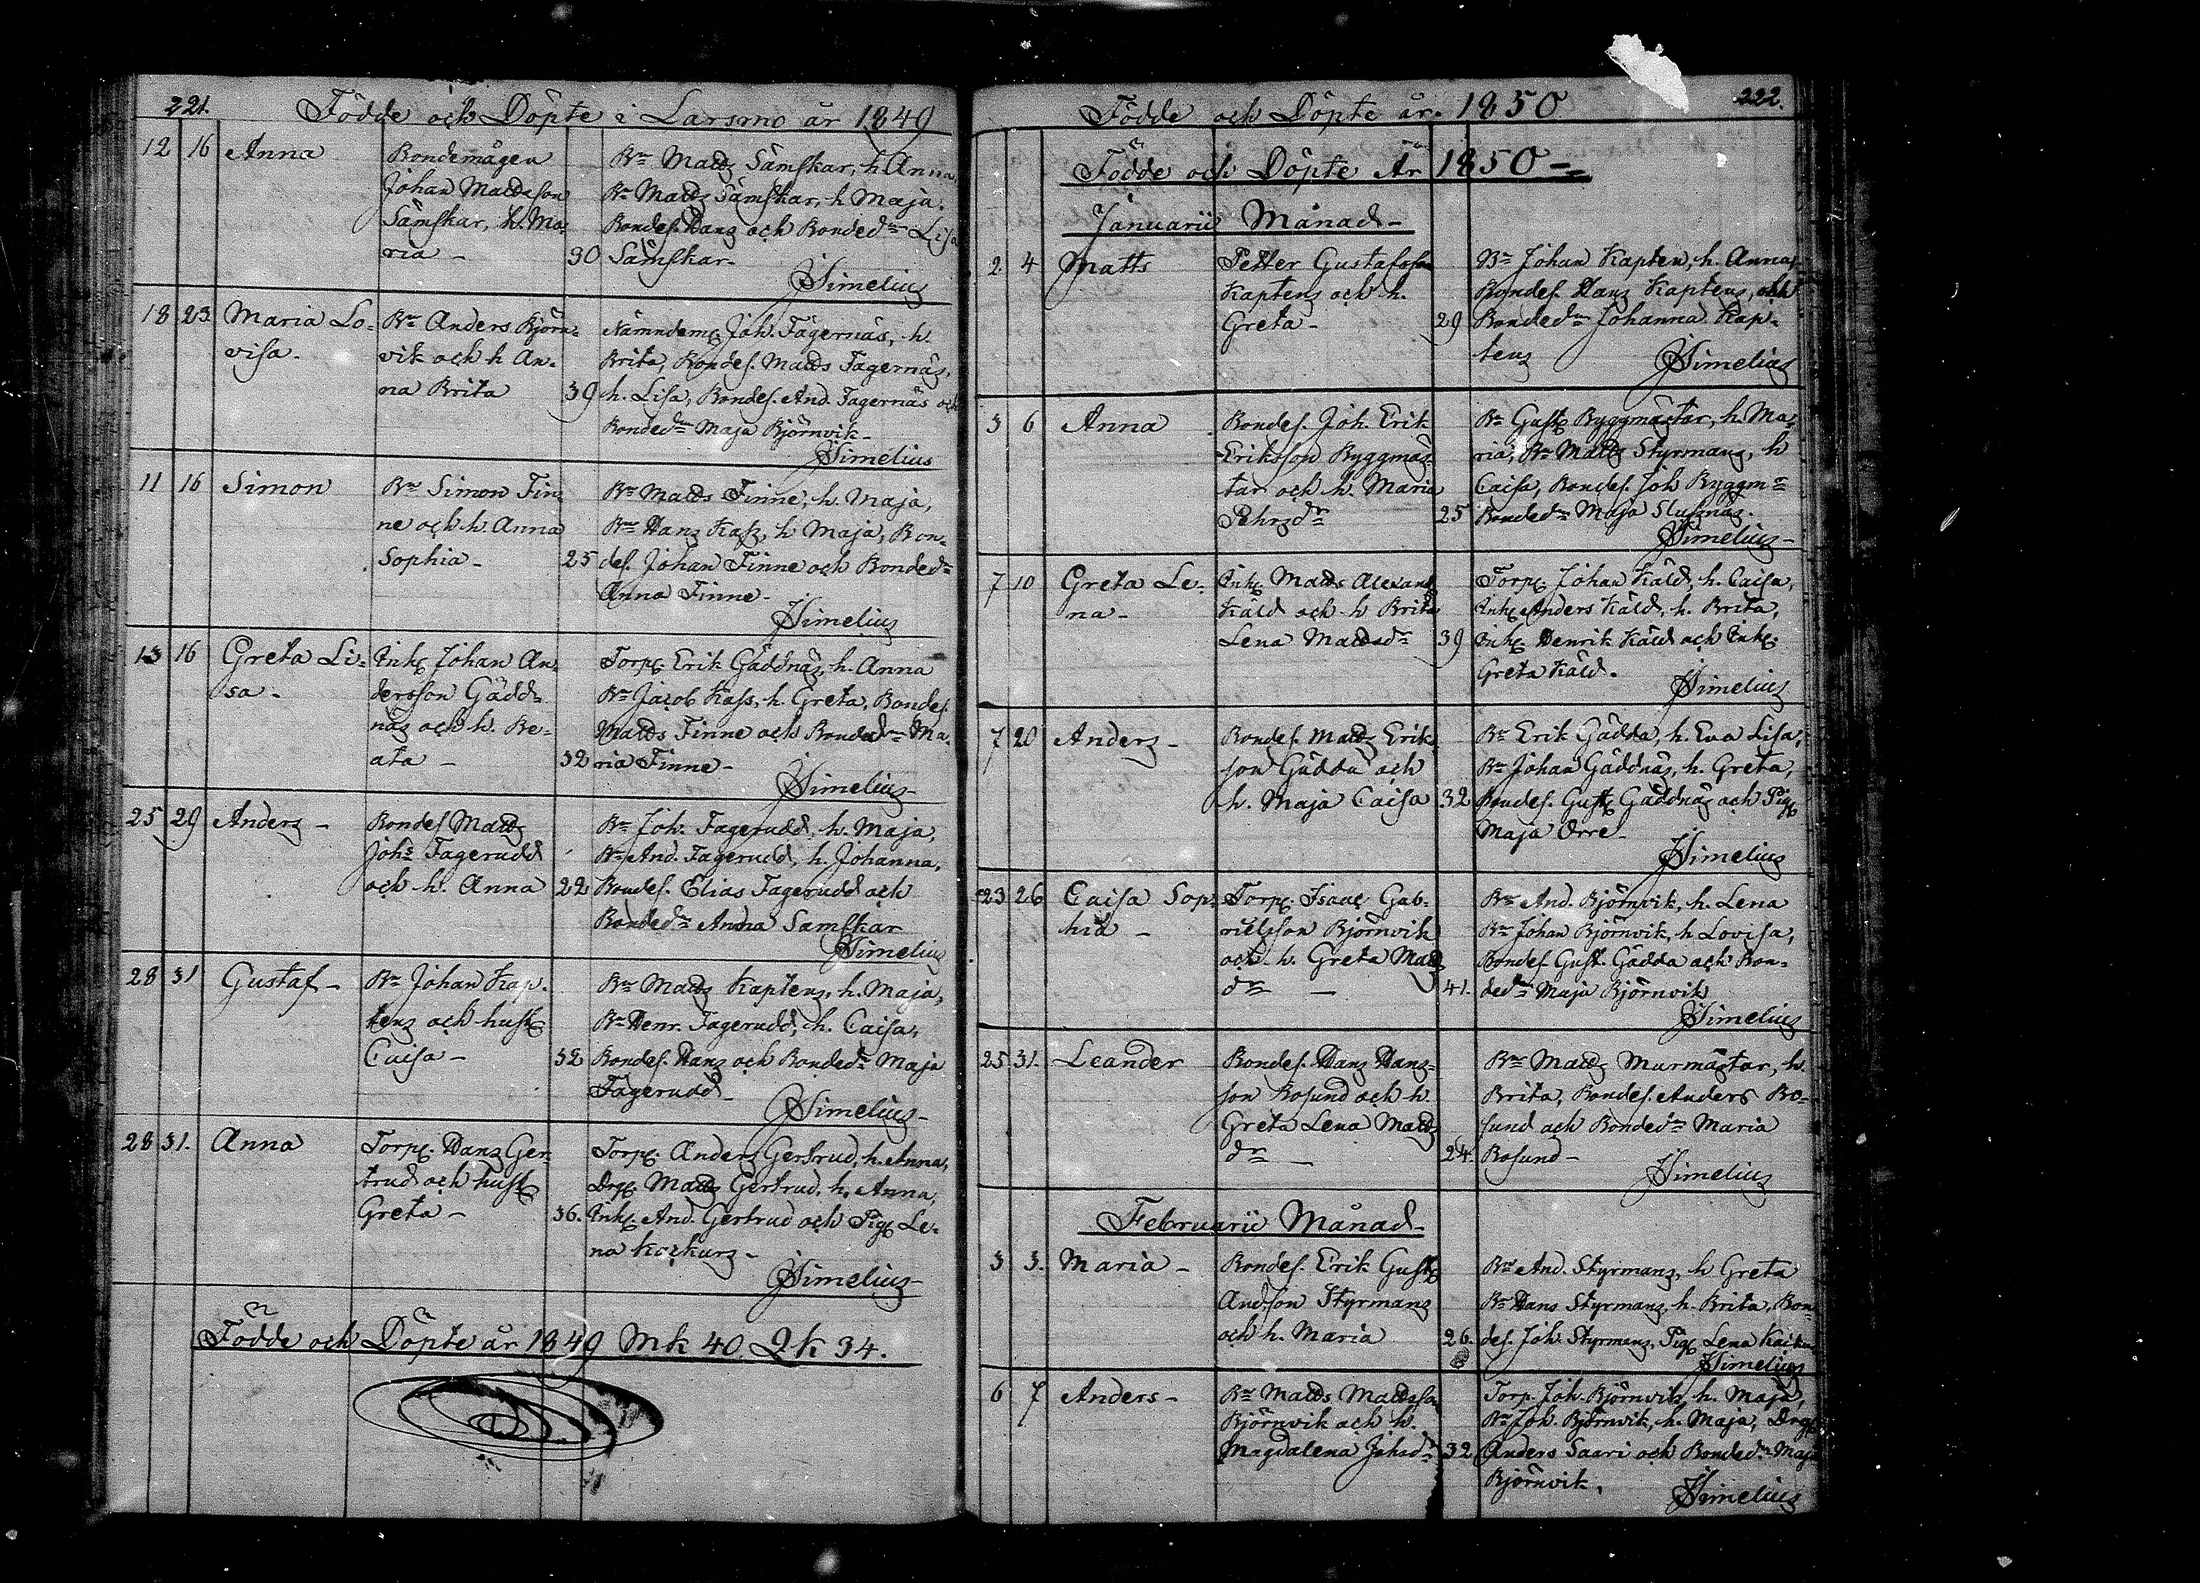 221.
Födde och Döpte i Larsmo år 1849
12 16 Anna
Bondemågen
Johan Mattsson
Sämskar, h. Ma-
ria - 30
Bn Matts Sämskar, h Anna,
Bn Matts Sämskar, h Maja.
Bondes. Hans och Bondedr Lisa
Sämskar-
Simelius
18 23 Maria Lo-
visa-
Bn Anders Björn-
vik och h An-
na Brita 39
Nämndem. Joh. Fagernäs, h.
Brita, Bondes. Matts Fagernäs,
h. Lisa, Bondes. And. Fagernäs och
Bondedr Maja Björnvik-
Simelius
11 16 Simon
Bn Simon Fin-
ne och h. Anna
Sophia- 25
Bn Matts Finne, h. Maja,
Bn Hans Kass, h Maja, Bon-
des. Johan Finne och Bondedr
Anna Finne-
Simelius
13 16 Greta Li-
sa-
Inh. Johan An-
dersson Gädd-
näs och h. Be-
ata - 32
Torp. Erik Gäddnäs, h. Anna
Bn Jacob Kass, h. Greta, Bondes.
Matts Finne och Bondedr Ma-
ria Finne-
Simelius
25 29 Anders -
Bondes Matts
Johs Fagerudd
och h. Anna 22
Bn Joh. Fagerudd, h. Maja,
Bn And. Fagerudd, h. Johanna,
Bondes. Elias Fagerudd och
Bondedr Anna Samskar
Simelius
28 31 Gustaf-
Bn Johan Kap-
tens och hust.
Caisa- 32
Bn Matts Kaptens, h. Maja,
Bn Henr. Fagerudd, h. Caisa,
Bondes. Hans och Bondedr Maja
Fagerudd-
Simelius-
28 31. Anna
Torp. Hans Ger-
trud och hust.
Greta- 36.
Torp. Anders Gertrud, h. Anna,
Drg. Matts Gertrud, h. Anna,
Inh. And. Gertrud och Pig. Le-
na
Simelius-
Födde och Döpte år 1849 Mk 40 Qk 34.
222.
Födde och Döpte år. 1850
Födde och Döpte År 1850-
Januarii Månad-
2. 4 Matts
Petter Gustafsson
Kaptens och h.
Greta- 29
Bn Johan Kapten, h. Anna,
Bondes. Hans Kaptens, och
Bondedr Johanna Kap-
tens
Simelius
3 6 Anna
Bondes. Joh. Erik
Eriksson Byggmäs-
tar och h. Maria
Pehrsdr 25
Bn Gust. Byggmästar, h. Ma-
ria, Bn Matts Styrmans, h
Caisa, Bondes. Joh Byggmr
Bondedr Maja Slussnäs.
Simelius-
7 10 Greta Le-
na-
Inh. Matts Alexand.
Käld och h Brita
Lena Mattsdr 39
Torp. Johan Käld, h. Caisa,
Inh. Anders Käld, h. Brita,
Inh. Henrik Käld och Inh.
Greta Käld.
Simelius
7 20 Anders-
Bondes. Matts Eriks-
son Gädda och
h. Maja Caisa 32
Bn Erik Gädda, h. Eva Lisa,
Bn Johan Gäddnäs, h. Greta,
Bondes. Gust. Gäddnäs och Pig.
Maja Orre-
Simelius
23 26 Caisa Sop-
hia -
Torp. Isaac Gab-
rielsson Björnvik
och h. Greta Matts
dr - 41.
Bn And. Björnvik, h. Lena
Bn Johan Björnvik, h Lovisa,
Bondes. Gust. Gädda och Bon-
dedr Maja Björnvik
Simelius
25 31. Leander
Bondes. Hans Hans-
son Bosund och h
Greta Lena Matts
dr - 24.
Bn Matts Murmästar, h.
Brita, Bondes. Anders Bo-
sund och Bondedr Maria
Bosund-
Simelius
Februarii Månad-
3 3. Maria-
Bondes. Erik Gust.
Andsson Styrmans
och h. Maria 26.
Bn And. Styrmans, h Greta
Bn Hans Styrmans, h. Brita, Bon-
des. Joh. Styrmans, Pig. Lena
Simelius
6 7 Anders-
Bn Matts Mattsson
Björnvik och h.
Magdalena Johsdr 32
Torp. Joh. Björnvik, h. Maja,
Bn Joh. Björnvik, h. Maja, Drg.
Anders Saari och Bondedr Maja
Björnvik.
Simelius